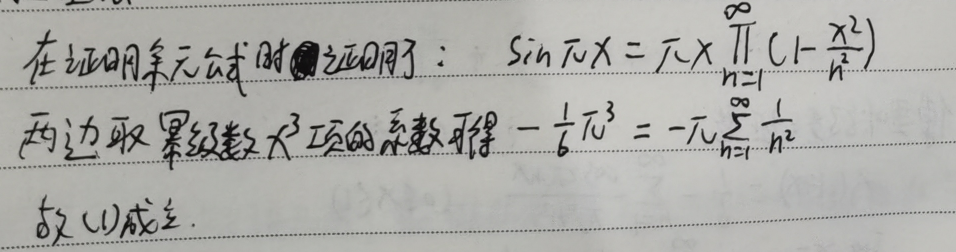 在证明余元公式时证明了： sin πx = πx ∏_{n=1}^{∞} (1 - x²/n²)
两边取幂级数 x³ 项的系数可得 -1/6 π³ = -π ∑_{n=1}^{∞} 1/n²
故 (1) 成立.